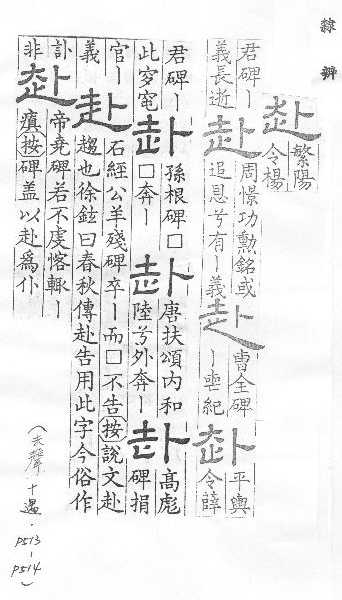 隸辨
赴繁陽
令楊
君碑〡
義長逝赴周憬功勳銘或
追恩兮有〡義赴曹全碑
〡喪紀赴平輿
令薛
君碑〡
此穸窀赴孫根碑□
□奔〡赴唐扶頌内和
陸兮外奔〡赴高彪
碑捐
官〡
義赴石經公羊殘碑卒〡而□不告按說文赴
趨也徐鉉曰春秋傳赴告用此字今俗作
訃
非赴帝堯碑若不虔愘輙〡
瘨按碑盖以赴爲仆
(去聲·十遇·P513-P514)